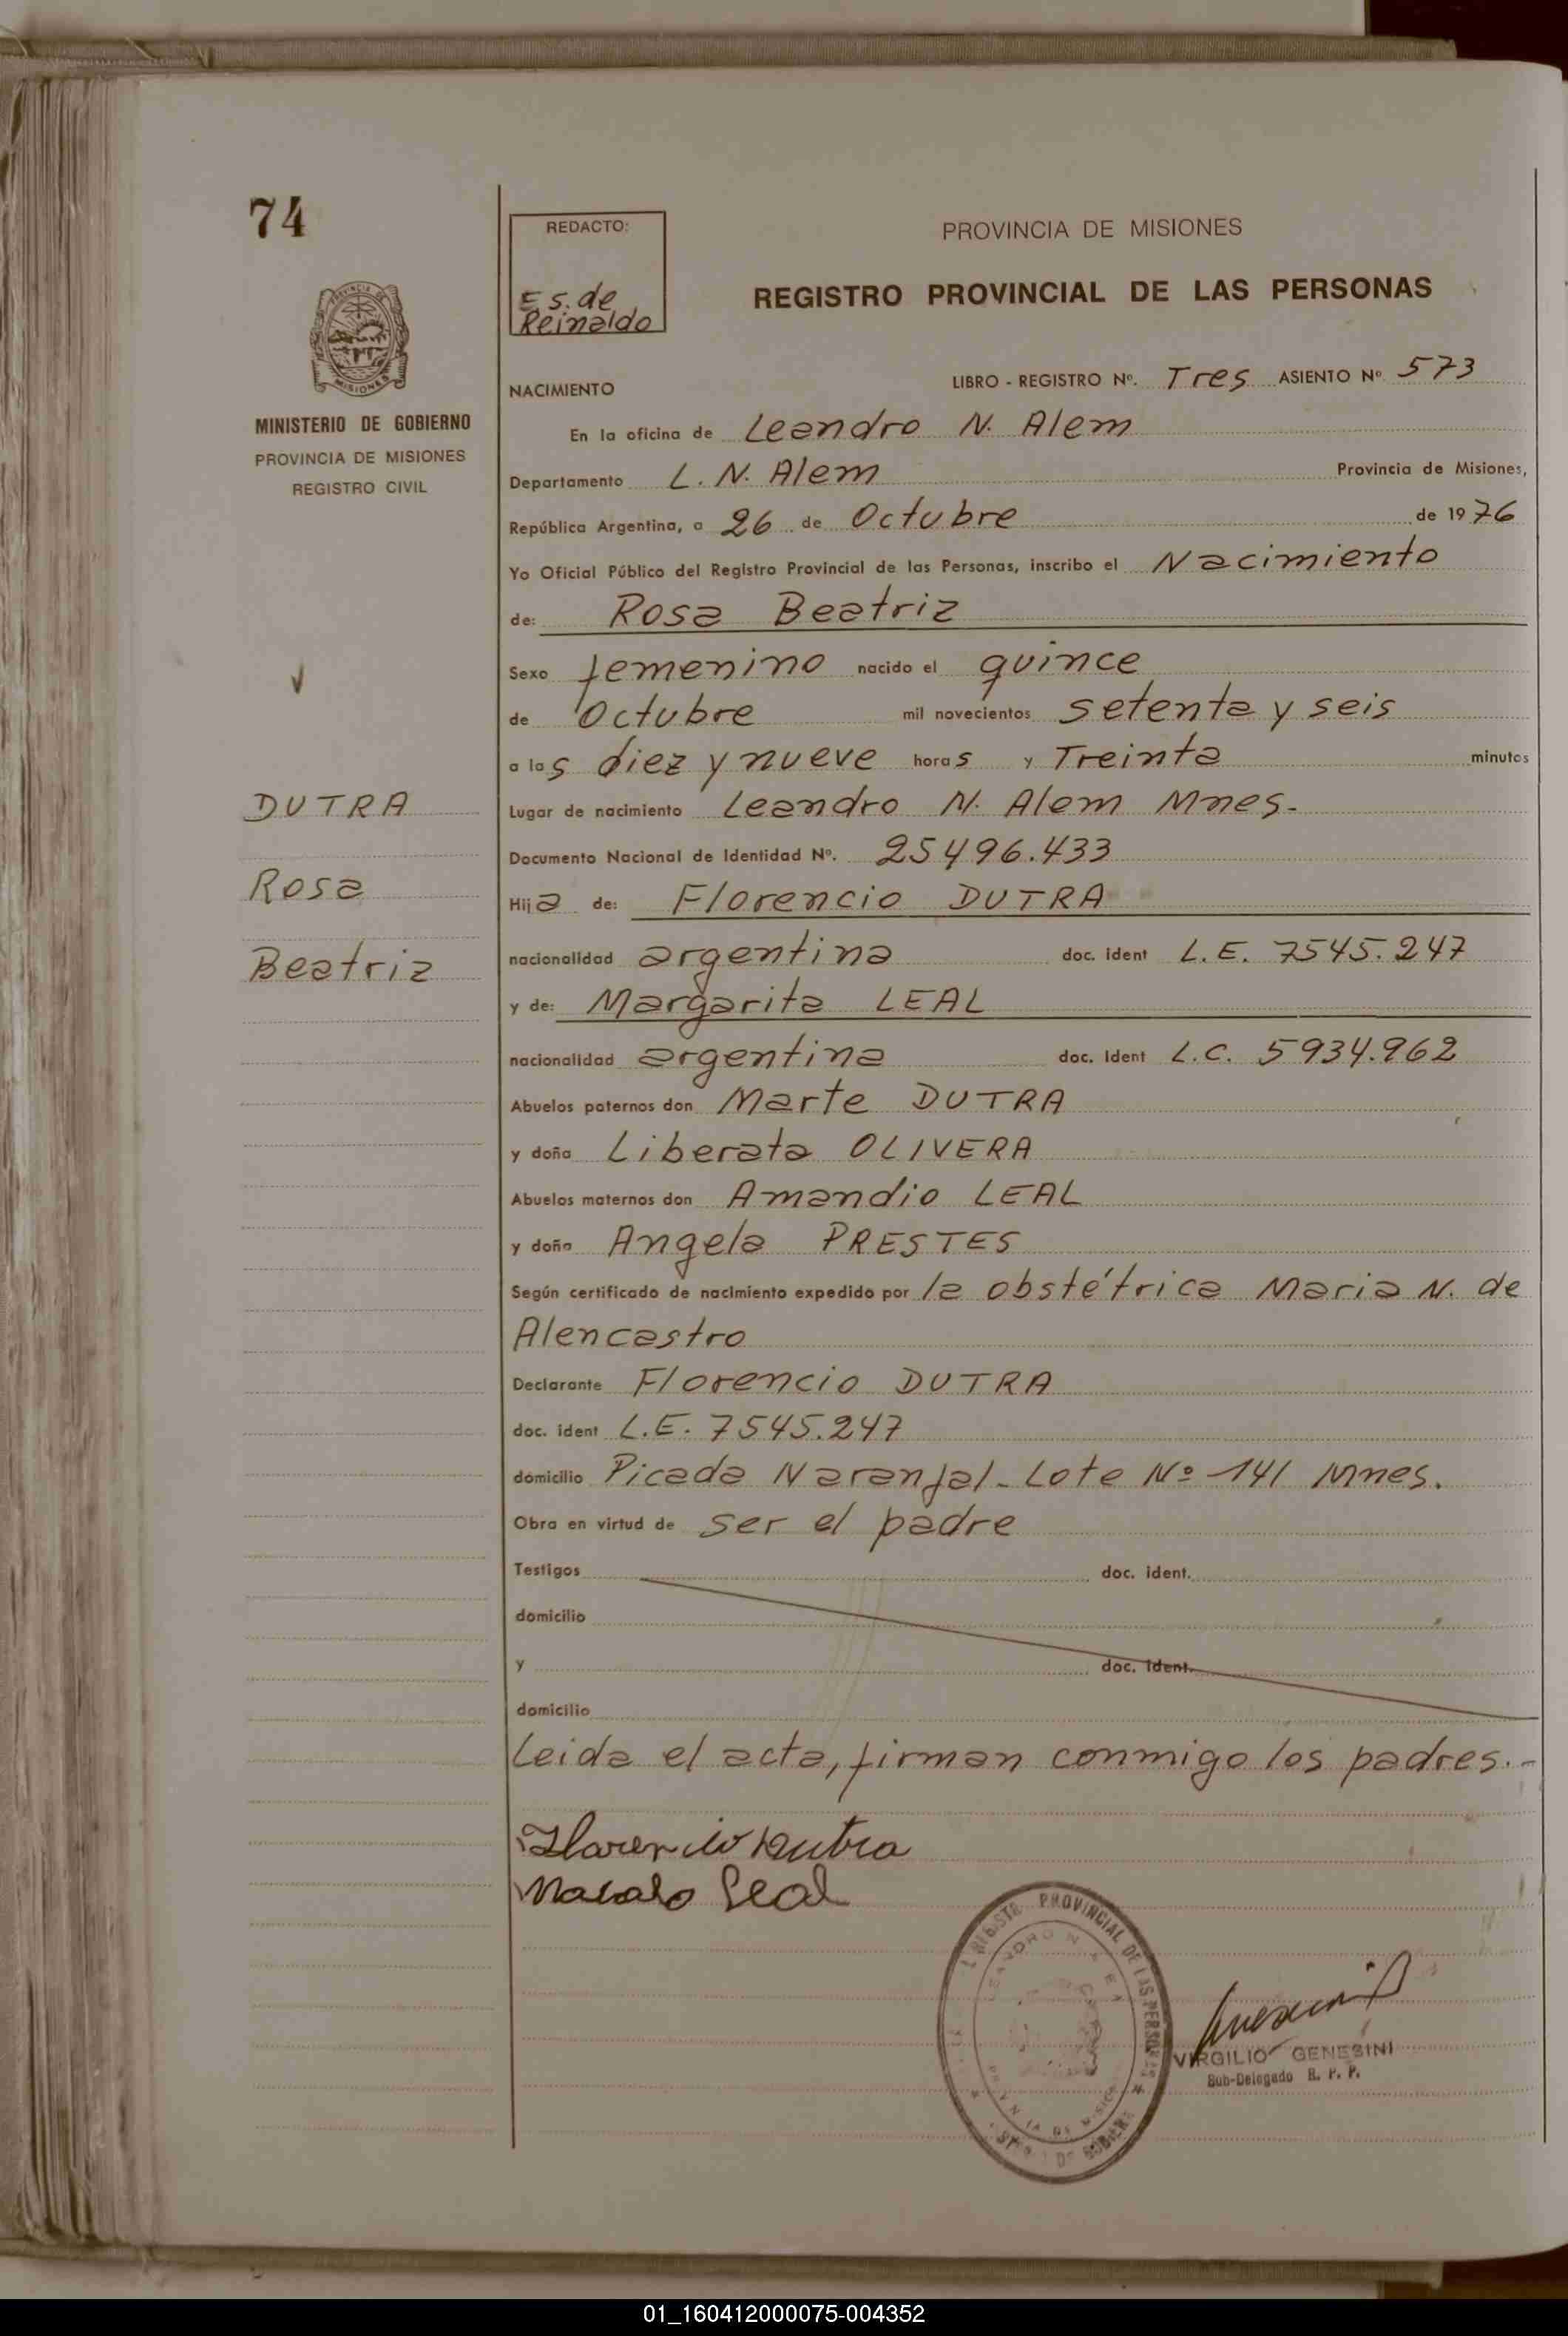 74
REDACTO:
E s. de
Reinaldo
PROVINCIA DE MISIONES
REGISTRO PROVINCIAL DE LAS PERSONAS
PROVINCIA DE
MISIONES
MINISTERIO DE GOBIERNO
PROVINCIA DE MISIONES
REGISTRO CIVIL
NACIMIENTO LIBRO - REGISTRO Nº. Tres ASIENTO Nº. 573
En la oficina de Leandro N. Alem
Departamento L. N. Alem Provincia de Misiones,
República Argentina, a 26 de Octubre de 1976
Yo Oficial Público del Registro Provincial de las Personas, inscribo el Nacimiento
de: Rosa Beatriz
Sexo femenino nacido el quince
de Octubre mil novecientos setenta y seis
a las diez y nueve horas y Treinta minutos
DUTRA
Rosa
Beatriz
Lugar de nacimiento Leandro N. Alem Mnes-
Documento Nacional de Identidad Nº. 25496.433
Hija de: Florencio DUTRA
nacionalidad argentina doc. ident L.E. 7545.247
y de: Margarita LEAL
nacionalidad argentina doc. ident L.C. 5934.962
Abuelos paternos don Marte DUTRA
y doña Liberata OLIVERA
Abuelos maternos don Amandio LEAL
y doña Angela PRESTES
Según certificado de nacimiento expedido por la obstétrica Maria N. de
Alencastro
Declarante Florencio DUTRA
doc. ident L.E. 7545.247
domicilio Picada Naranjal- Lote Nº 141 Mnes.
Obra en virtud de ser el padre
Testigos doc. ident.
domicilio
y doc. ident.
domicilio
Leida el acta, firman conmigo los padres.-
Leal
PROVINCIAL DE LAS PERSONAS
VIRGILIO GENESINI
Sub-Delegado R. P. P.
01_160412000075-004352